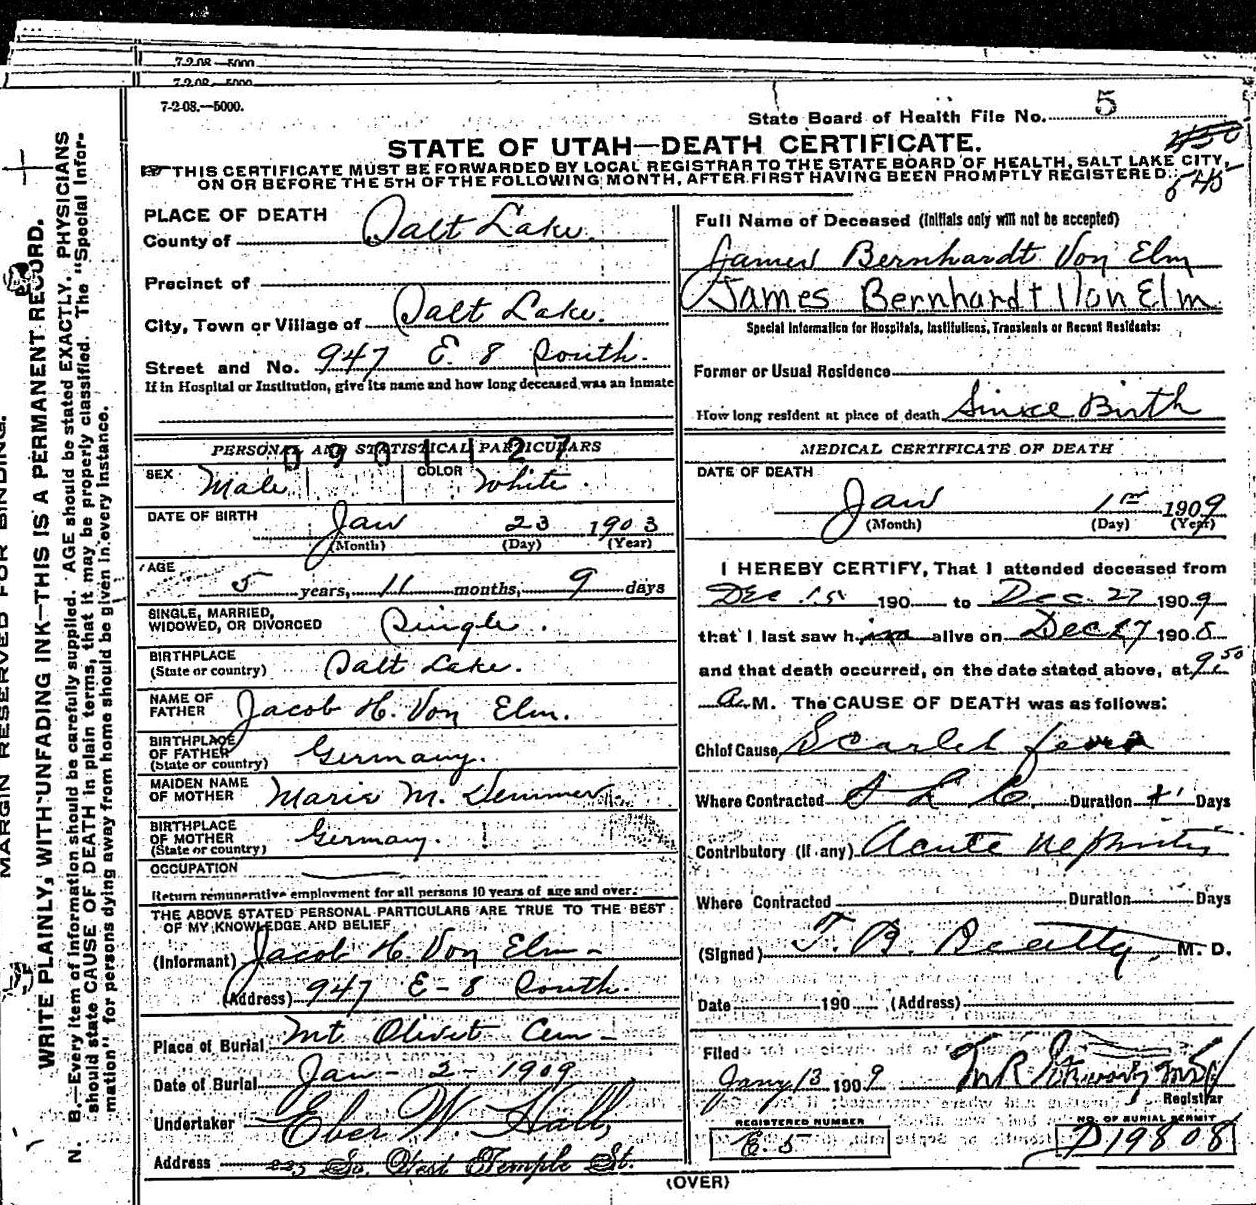 7-2-08.—5000.
7-2-08.—5000.
7-2-08.—5000.
State Board of Health File No. 5
STATE OF UTAH—DEATH CERTIFICATE.
450
THIS CERTIFICATE MUST BE FORWARDED BY LOCAL REGISTRAR TO THE STATE BOARD OF HEALTH, SALT LAKE CITY,
ON OR BEFORE THE 5TH OF THE FOLLOWING MONTH, AFTER FIRST HAVING BEEN PROMPTLY REGISTERED.
545
MARGIN RESERVED FOR BINDING.
WRITE PLAINLY, WITH UNFADING INK—THIS IS A PERMANENT RECORD.
N. B.—Every item of information should be carefully supplied. AGE should be stated EXACTLY. PHYSICIANS
should state CAUSE OF DEATH in plain terms, that it may be properly classified. The "Special Infor-
mation" for persons dying away from home should be given in every instance.
PLACE OF DEATH
County of Salt Lake.
Precinct of
City, Town or Village of Salt Lake.
Street and No. 947 E. 8 South.
If in Hospital or Institution, give its name and how long deceased was an inmate
PERSONAL AND STATISTICAL PARTICULARS
SEX Male COLOR White.
DATE OF BIRTH Jan 23 1903
(Month) (Day) (Year)
AGE
5 years, 11 months, 9 days
SINGLE, MARRIED,
WIDOWED, OR DIVORCED Single.
BIRTHPLACE
(State or country) Salt Lake.
NAME OF
FATHER Jacob H. Von Elm.
BIRTHPLACE
OF FATHER
(State or country) Germany.
MAIDEN NAME
OF MOTHER Marie M. Demmer
BIRTHPLACE
OF MOTHER
(State or country) Germany.
OCCUPATION
Return remunerative employment for all persons 10 years of age and over.
THE ABOVE STATED PERSONAL PARTICULARS ARE TRUE TO THE BEST
OF MY KNOWLEDGE AND BELIEF
(Informant) Jacob H. Von Elm -
(Address) 947 E - 8 South.
Place of Burial Mt Olivet Cem -
Date of Burial Jan - 2 - 1909
Undertaker Eber W. Hall,
Address So. West Temple St.
Full Name of Deceased (Initials only will not be accepted)
James Bernhardt Von Elm
James Bernhardt Von Elm
Special Information for Hospitals, Institutions, Transients or Recent Residents:
Former or Usual Residence
How long resident at place of death Since Birth
MEDICAL CERTIFICATE OF DEATH
DATE OF DEATH
Jan 1st 1909
(Month) (Day) (Year)
I HEREBY CERTIFY, That I attended deceased from
Dec 15 190 to Dec. 27 1909
that I last saw him alive on Dec 27 1908
and that death occurred, on the date stated above, at 9:50
a. M. The CAUSE OF DEATH was as follows:
Chief Cause Scarlet fever
Where Contracted S L C. Duration Days
Contributory (if any) Acute Nephritis
Where Contracted Duration Days
(Signed) T. B. Beatty, M. D.
Date 190 (Address)
Filed
Jany 13 1909
Registrar
REGISTERED NUMBER
E. 5
NO. OF BURIAL PERMIT
D19808
(OVER)